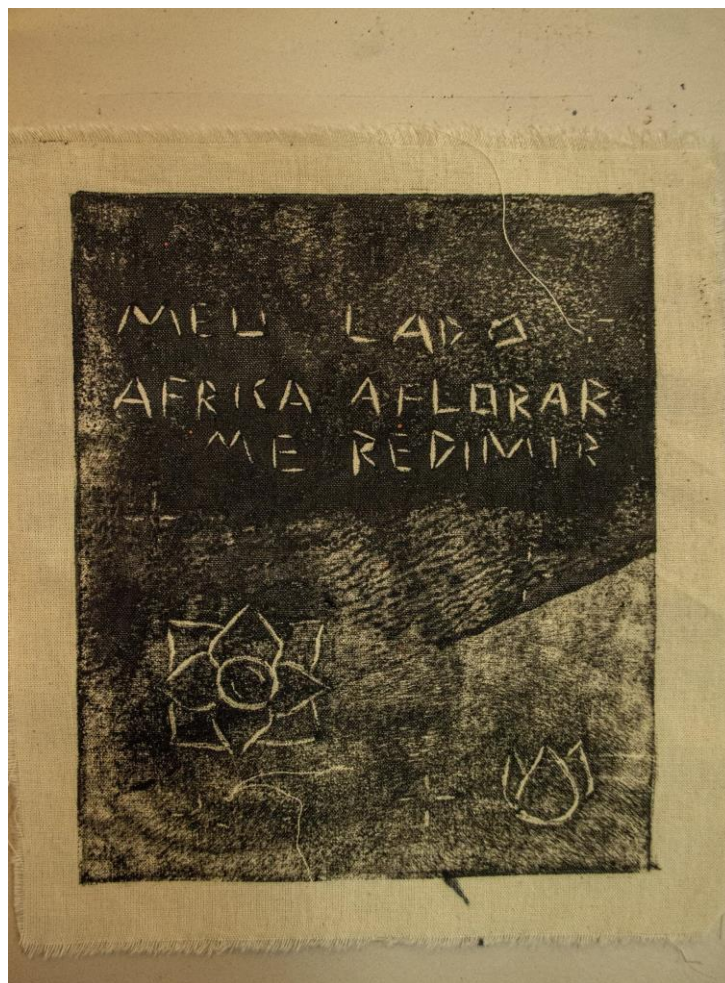 MEU LADO
AFRICA AFLORAR
ME REDIMIR